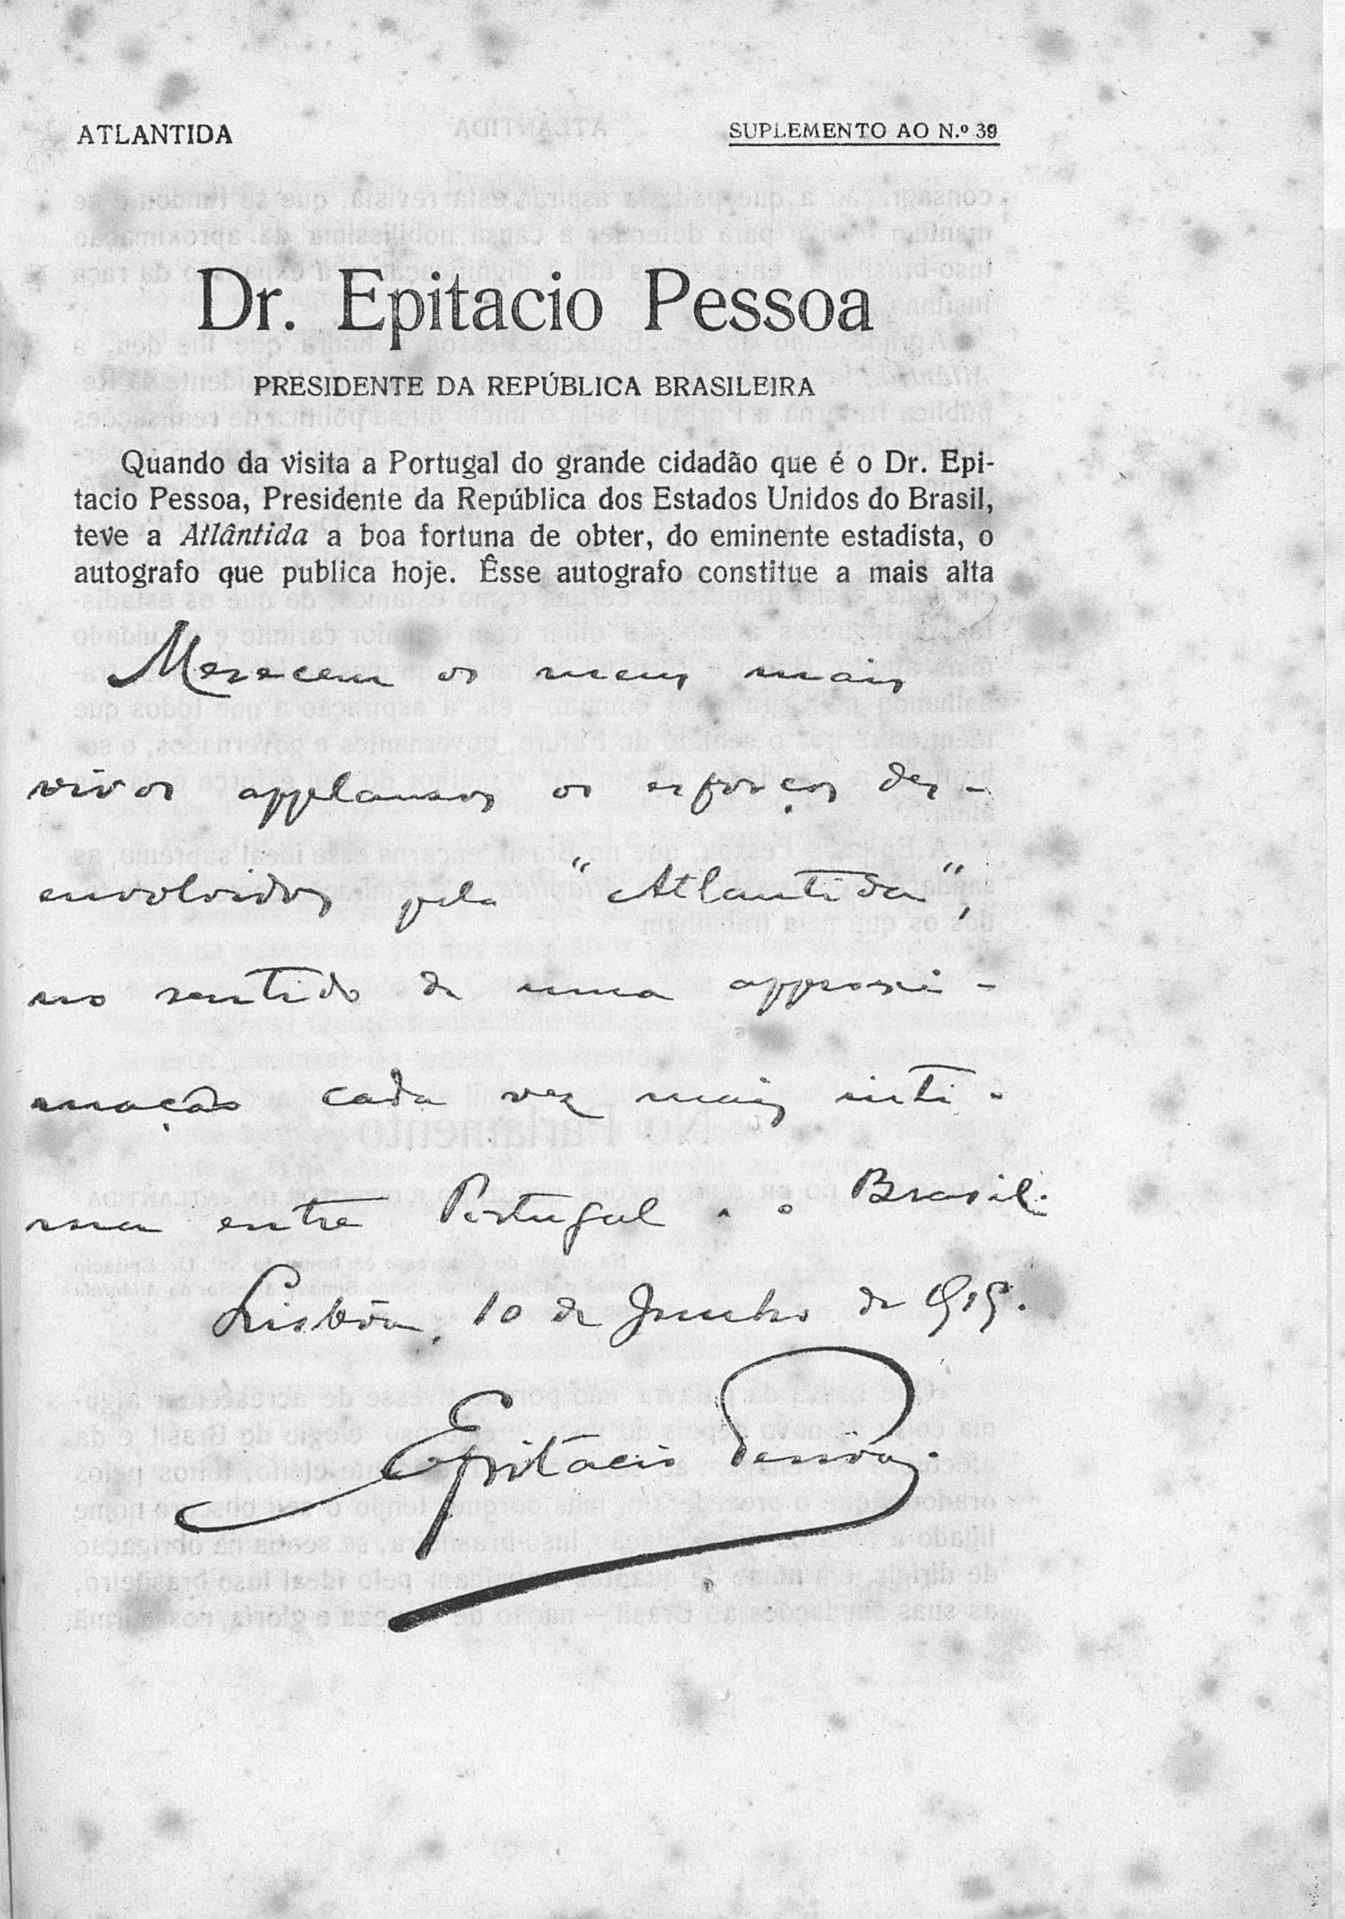 ATLANTIDA
SUPLEMENTO AO N.º 39
Dr. Epitacio Pessoa
PRESIDENTE DA REPÚBLICA BRASILEIRA
Quando da visita a Portugal do grande cidadão que é o Dr. Epi-
tacio Pessoa, Presidente da República dos Estados Unidos do Brasil,
teve a Atlântida a boa fortuna de obter, do eminente estadista, o
autografo que publica hoje. Êsse autografo constitue a mais alta
Merecem os meus mais
vivos applausos os esforços des-
envolvidos pela "Atlantida",
no sentido de uma approxi-
mação cada vez mais inti-
ma entre Portugal e o Brasil.
Lisbôa, 10 de Junho de 1919.
Epitacio Pessôa.